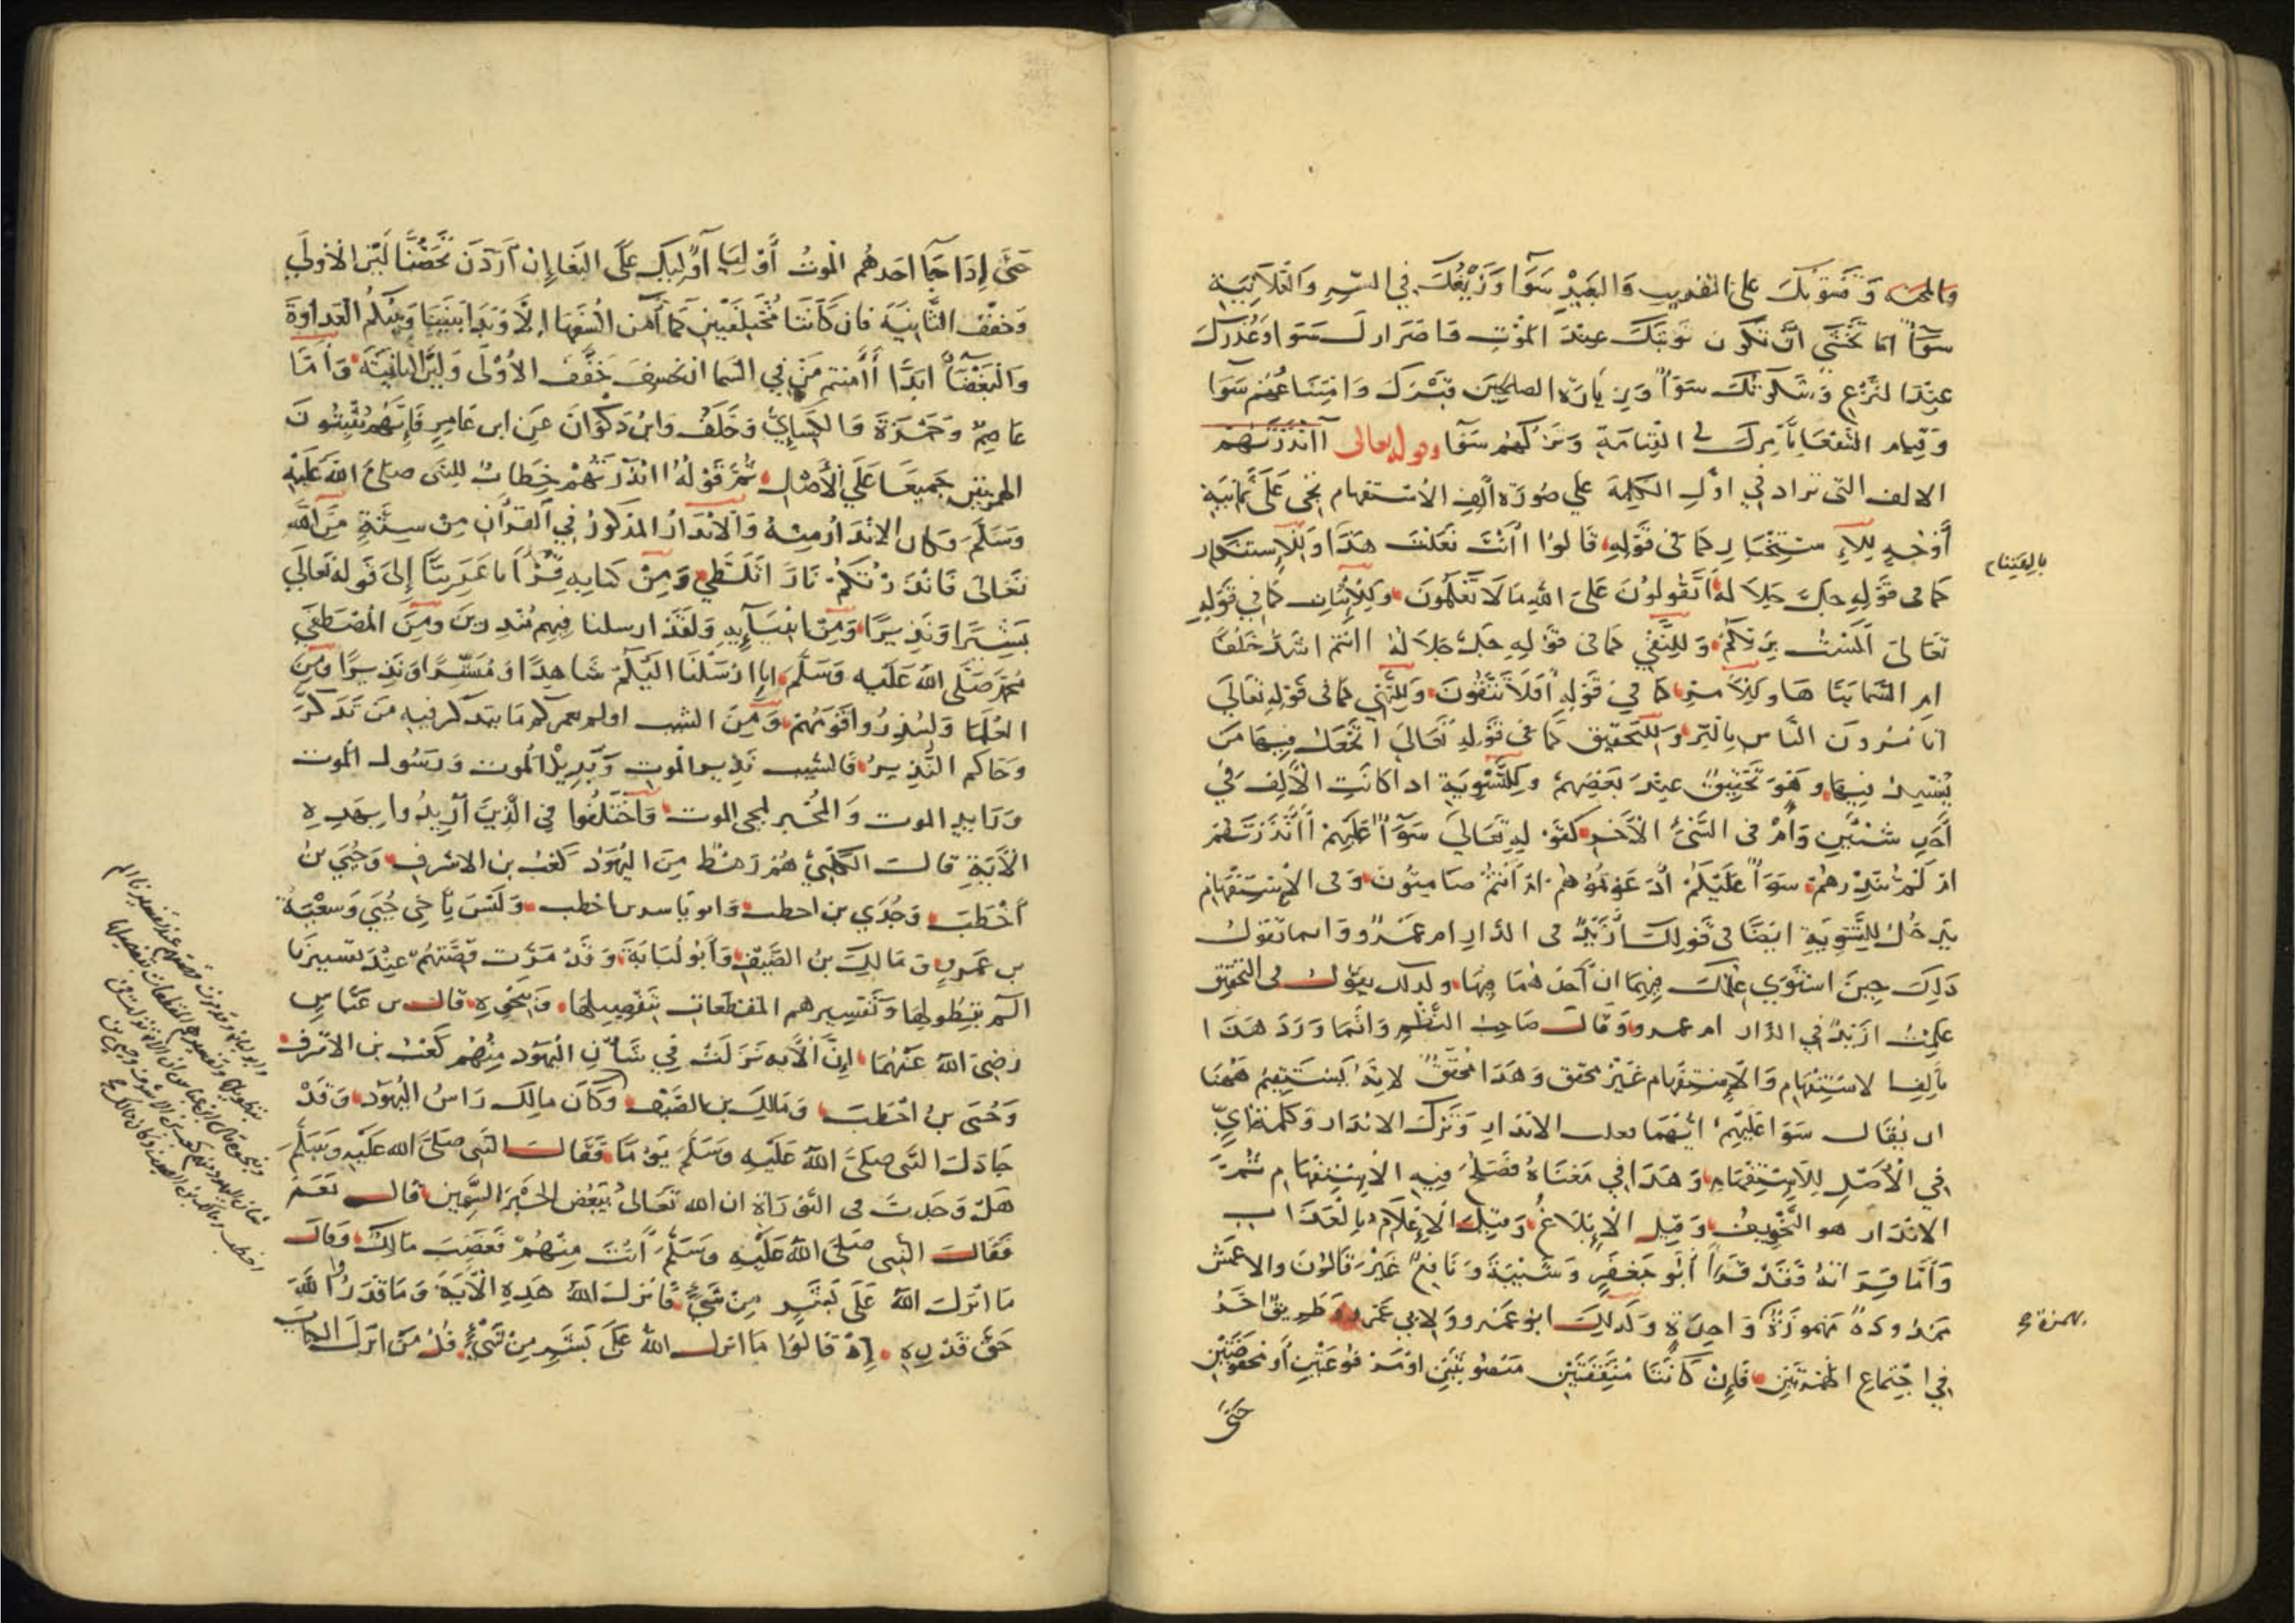 والمحنه وفسوتك على القريب والبعيد سَوَآ وَزَيْغُكَ فِي السِّرِ وَالْعَلَانِيَةِ
سَوَآءٌ اما تَخْشَى اَنْ تكُون تَوبَتكَ عِندَ المَوْتِ وَاصرارك سَوَا وَعُذرك
عِنْدَ النزْعِ وَشكوتك سَوَآءٌ وَزِيَارَة الصلحين قبْرَكَ وَامْتِنَاعُهُمْ سَوَا
وَقِيَام الشفعا بأمرك في القِيَامَةِ وَتَركهُم سَوَا وقوله تعالى أَأَنْذَرْتَهُمْ
الالف التى تزاد في اوّلِ الكَلِمَة علي صُورَة أَلِفِ الاسْتفهام تجى عَلَى ثَمانيَةِ
أَوْجُهٍ لِلاِسْتِخْبَارِ كمَا فى قَوْلِهِ قَالُوا أَأَنْتَ فَعَلْتَ هَذَا وَلِلاِستنكار
كما فى قَوْلِهِ جلّ جَلاَلهُ أَتَقُولُونَ عَلَى اللهِ مَا لَا تَعْلَمُونَ وَلِلْإثْبَاتِ كَمَا فِي قَوْلِهِ
تَعَالىَ أَلَسْتُ بِرَبِّكُمْ وَلِلنَّفْيِ كمافى قَوْلِهِ جَلَّ جَلَالُهُ أَأَنْتُمْ اَشَدُّ خَلْقًا
امِ السَّمَا بَنَاهَا وَلِلأمرِ كمَا فِي قَوْلِهِ أَفَلَا تَتَّقُونَ وَلِلنَّهْيِ كمافى قَوْلِهِ تَعَالَى
اتامُرُونَ النَّاس بِالْبِرِّ وَلِلتَّحْقِيقِ كمَا فى قَوْلِهِ تَعَالَى أَتَجْعَلُ فِيهَا مَنْ
يُفْسِدُ فِيهَا وَهُوَ تَحْقِيقٌ عِنْدَ بَعْضِهِمْ وَلِلتَّسْوِيَةِ اذا كَانَتِ الْأَلِفُ فِي
أَحَدِ شَيْئَيْنِ وَأَمْ فى الشَّىْءِ الْآخَرِ كقَوْلِهِ تَعَالَى سَوَآءٌ عَلَيْهِمْ أَأَنْذَرْتَهُمْ
ام لَمْ تُنْذِرْهُمْ سَوَآءٌ عَلَيْكُمْ أَدَعَوْتُمُوهُمْ امْ أَنْتُمْ صَامِتُونَ وَفى الاسْتِفْهَامِ
يَدْخُلُ لِلتَّسْوِيَةِ ايْضًا فى قَولِكَ أَزَيْدٌ فى الدَّارِ ام عَمْرٌو وَانما تَقُولُ
ذَلِكَ حِينَ اسْتَوَى عِلْمُكَ فِيهِمَا انَّ أَحَدَهُمَا فِيهَا ولذلك يقول فى التحقيق
عَلِمْتُ ازَيْدٌ فِي الدَّار ام عمرو وَقَالَ صَاحِبُ النَّظْمِ وَانَّمَا وَرَدَ هَذَا
بِأَلِفِ الاسْتِفْهَامِ وَالْاِسْتِفْهَام غَيْرُ محقق وَهَذَا مُحَقَّقٌ لِانَّهُ يَسْتَقِيمُ هٰهُنَا
ان يُقَالَ سَوَا عَلَيْهِمْ أَيُّهمَا فعلت الانذار وَتَرْكَ الانذار وَكلِمَةُ اَيِّ
فِي الْأَصْلِ لِلاِسْتِفْهَامِ وَهَذَا فِي مَعْنَاهُ فَصَلُحَ فِيهِ الْاِسْتِفْهَام ثُمَّ
الانذار هو التَّخْوِيفُ وَقِيل الْإِبْلَاغُ وَقِيلَ الْإِعْلَامُ بِالْعَذَاب
وَأَمَّا قِرَاتهُ فَقَدْ قَرَأَ أَبُو جَعْفَرٍ وَشَيْبَةُ وَنَافِعٌ غَيْرَ قَالُونَ والاعمَش
ممدُودةً مَهْمُوزَةً وَاحِدَةً وَكَذلِكَ ابوُ عَمْرو ولابي عَمرو طَرِيقٌ اخَرُ
فِي اجْتِمَاعِ الهَمْزَتَيْنِ فَإِنْ كَانَتَا مُتَّفِقَتَيْنِ مَنْصُوبَتَيْنِ اوْ مَرْفُوعَتَيْنِ أَوْ مخفوضَتَيْنِ
حَتَّى
بهمزة صح
حَتَّى إِذَا جَا احَدَهُمُ الْمَوتُ أَوْلِيَا أُولَئِكَ عَلَى البَغَا إِنْ أَرَدْنَ تَحَصُّنًا لَيَّنَ الْأُولَى
وَخفّفَ الثَّانِيَةَ فان كَانَتَا مُخْتَلِفَتَيْنِ كَمَا آمَنَ السُّفَهَا الَا وَبَدَا بَيْنَنَا وَبَيْنَكُمُ الْعَدَاوَةَ
وَالْبَغْضَآءُ ابَدًا أَأَمِنتم مَنْ فِي السَّمَا ان يخسِفَ خَفَّفَ الْأُوْلَى وَلَيَّنَ الثانِيَةَ وَأَمَّا
عَاصِمٌ وَحَمْزَةُ وَالكِسَايِيُّ وَخَلَفٌ وَابنُ ذَكْوَانَ عَنِ ابن عَامِرٍ فَإِنَّهُمْ يُثْبِتُونَ
الهمزتين جَمِيعًا عَلَي الْأَصْلِ ثُمَّ قَوْلُهُ اانْذَرْتَهُمْ خِطَابٌ لِلنَّبى صلى اللهُ عَلَيْهِ
وَسَلَّمَ وَكان الإنْذَارُ مِنْهُ وَالْانْذَارُ المَذكورُ فِي القرآنِ مِنْ سِتَّةٍ مِنَ اللهِ
تَعَالىَ فَانْذَرْتُكُمْ نَارًا تَلَظَّى وَمِنْ كتَابِهِ قُرْآنًا عَرَبِيًّا إِلَى قَوله تَعَالَى
بَشِيرًا وَنَذِيرًا وَمِنْ انْبِيَآئِهِ وَلَقَدْ ارسلنا فِيهِم مُنْذِرِينَ وَمِنَ الْمُصْطَفَى
مُحَمَّدٍ صَلَّى اللهُ عَلَيْهِ وَسَلَّمَ انا ارْسَلْنَا الَيْكُمْ شَاهِدًا وَمُبَشِّرًا وَنَذِيرًا وَمِنَ
العُلَمَا وَلِيُنْذِرُوا قَوْمَهُمْ وَمِنَ الشيب اولم نعمركم مَا يتذكر فيهِ مَنْ تَذَكَّرَ
وَجَاكم النَّذِيرُ فَالشيب نَذِير الموتِ وَبَرِيْدُ المَوت وَرَسُول الموت
وَرَايِد الموت وَالمُخْبر لمجى الموت وَاخْتَلَفُوا فِى الَّذِينَ أُرِيدُوا بِهَذِهِ
الْآيَةِ قالت الكَلْبِيُّ هُمْ رَهْطٌ مِنَ اليَهُوْدِ كَعْبُ بن الاشرف وَحُيَيُّ بنُ
أَخْطَبَ وَجُدَي بن اخطب وَابو يَاسر بن اخطب وَلَيْسَ بِأَخِي حُيَيٍّ وَسعْيَةُ
بن عَمرٍو وَمَالِكُ بن الضَّيْفِ وَأَبُو لُبَابَةَ وَقَدْ مَرَّت قِصَّتُهُمْ عِنْدَ تفسيرنَا
الم بِتَطْولِهَا وَتَفسِيرِهم المقطعات بِتَفْصِيلِهَا وَبنَحْوِهِ قالَ بن عَبَّاسٍ
رَضِىَ اللهُ عَنْهُمَا إِنَّ الْآيه نَزَلَتْ فِي شَأْنِ اليَهُود مِنْهُم كَعْبُ بن الاشرف
وَحُيَى بنُ اخْطَبَ وَمَالِكُ بن الضَيْف وَكَانَ مالك رَاسُ اليَهُود وَقَدْ
جَادَلَ النَّبى صَلَّى اللهُ عَلَيْهِ وَسَلَّمَ يَوْمًا فَقَالَ النَّبى صَلَّى الله عَلَيْهِ وَسَلَّمَ
هَلْ وَجَدتَ فى التَّوْرَاةِ ان الله تَعَالىٰ يُبْغِضُ الحَبْرَ السَّمِين قَالَ نَعَمْ
فَقَالَ النَّبى صَلى اللهُ عَلَيْهِ وَسَلَّمَ أَنْتَ مِنْهُمْ فَغَضِبَ مَالِكٌ وَقَالَ
مَا انْزَلَ اللهُ عَلَى بَشَرٍ مِنْ شَيْءٍ فَانزلَ اللهُ هَذِهِ الْآيَةَ وَمَا قَدَرُوا اللهَ
حَقَّ قَدْرِهِ إِذْ قَالُوا مَا انزل اللهُ عَلَى بَشَرٍ مِنْ شَيْءٍ قُلْ مَنْ انْزَلَ الكتاب